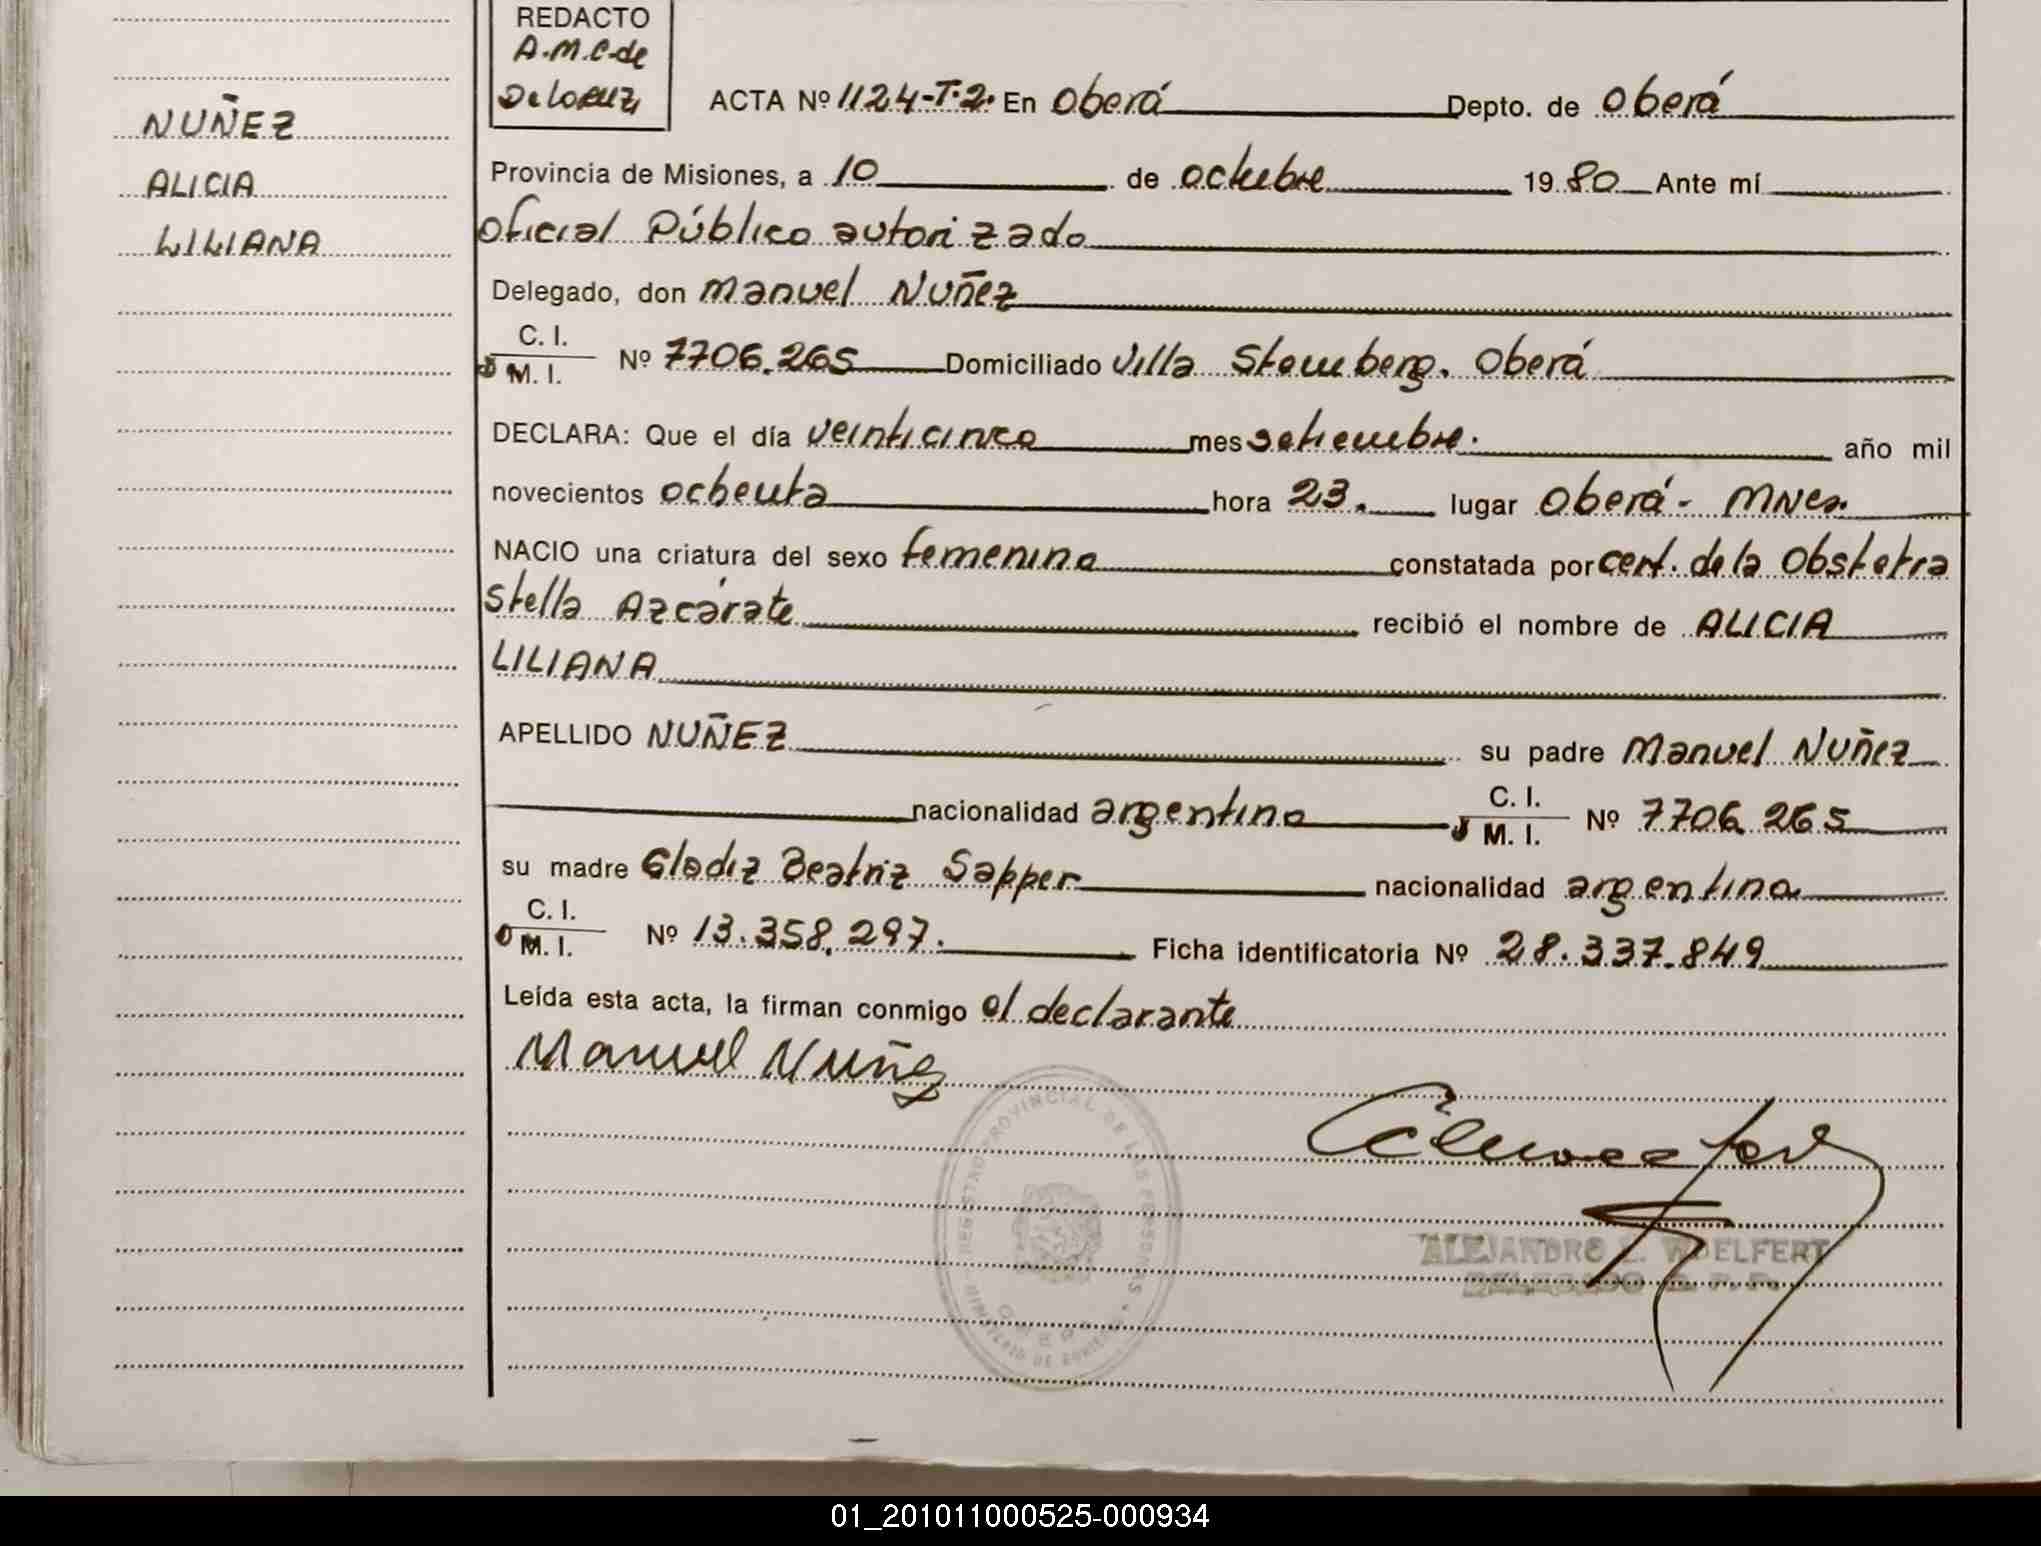 REDACTO
A.M.C. de
NUÑEZ
ALICIA
LILIANA
ACTA Nº 1124-T.2. En Oberá Depto. de Oberá
Provincia de Misiones, a 10 de octubre 1980 Ante mí
Oficial Público autorizado
Delegado, don Manuel Nuñez
C. I.
M. I. Nº 7706.265 Domiciliado Villa Stemberg. Oberá
DECLARA: Que el día veinticinco mes setiembre. año mil
novecientos ochenta hora 23. lugar Oberá - Mnes.
NACIO una criatura del sexo femenino constatada por cert. de la Obstetra
Stella Azcárate recibió el nombre de ALICIA
LILIANA
APELLIDO NUÑEZ su padre Manuel Nuñez
nacionalidad argentina C. I.
M. I. Nº 7706.265
su madre Gladiz Beatriz Sapper nacionalidad argentina
C. I.
M. I. Nº 13.358.297. Ficha identificatoria Nº 28.337.849
Leída esta acta, la firman conmigo el declarante
Manuel Nuñez
REGISTRO PROVINCIAL DE LAS PERSONAS
ALEJANDRO L. WOELFERT
DELEGADO R. P. P.
01_201011000525-000934